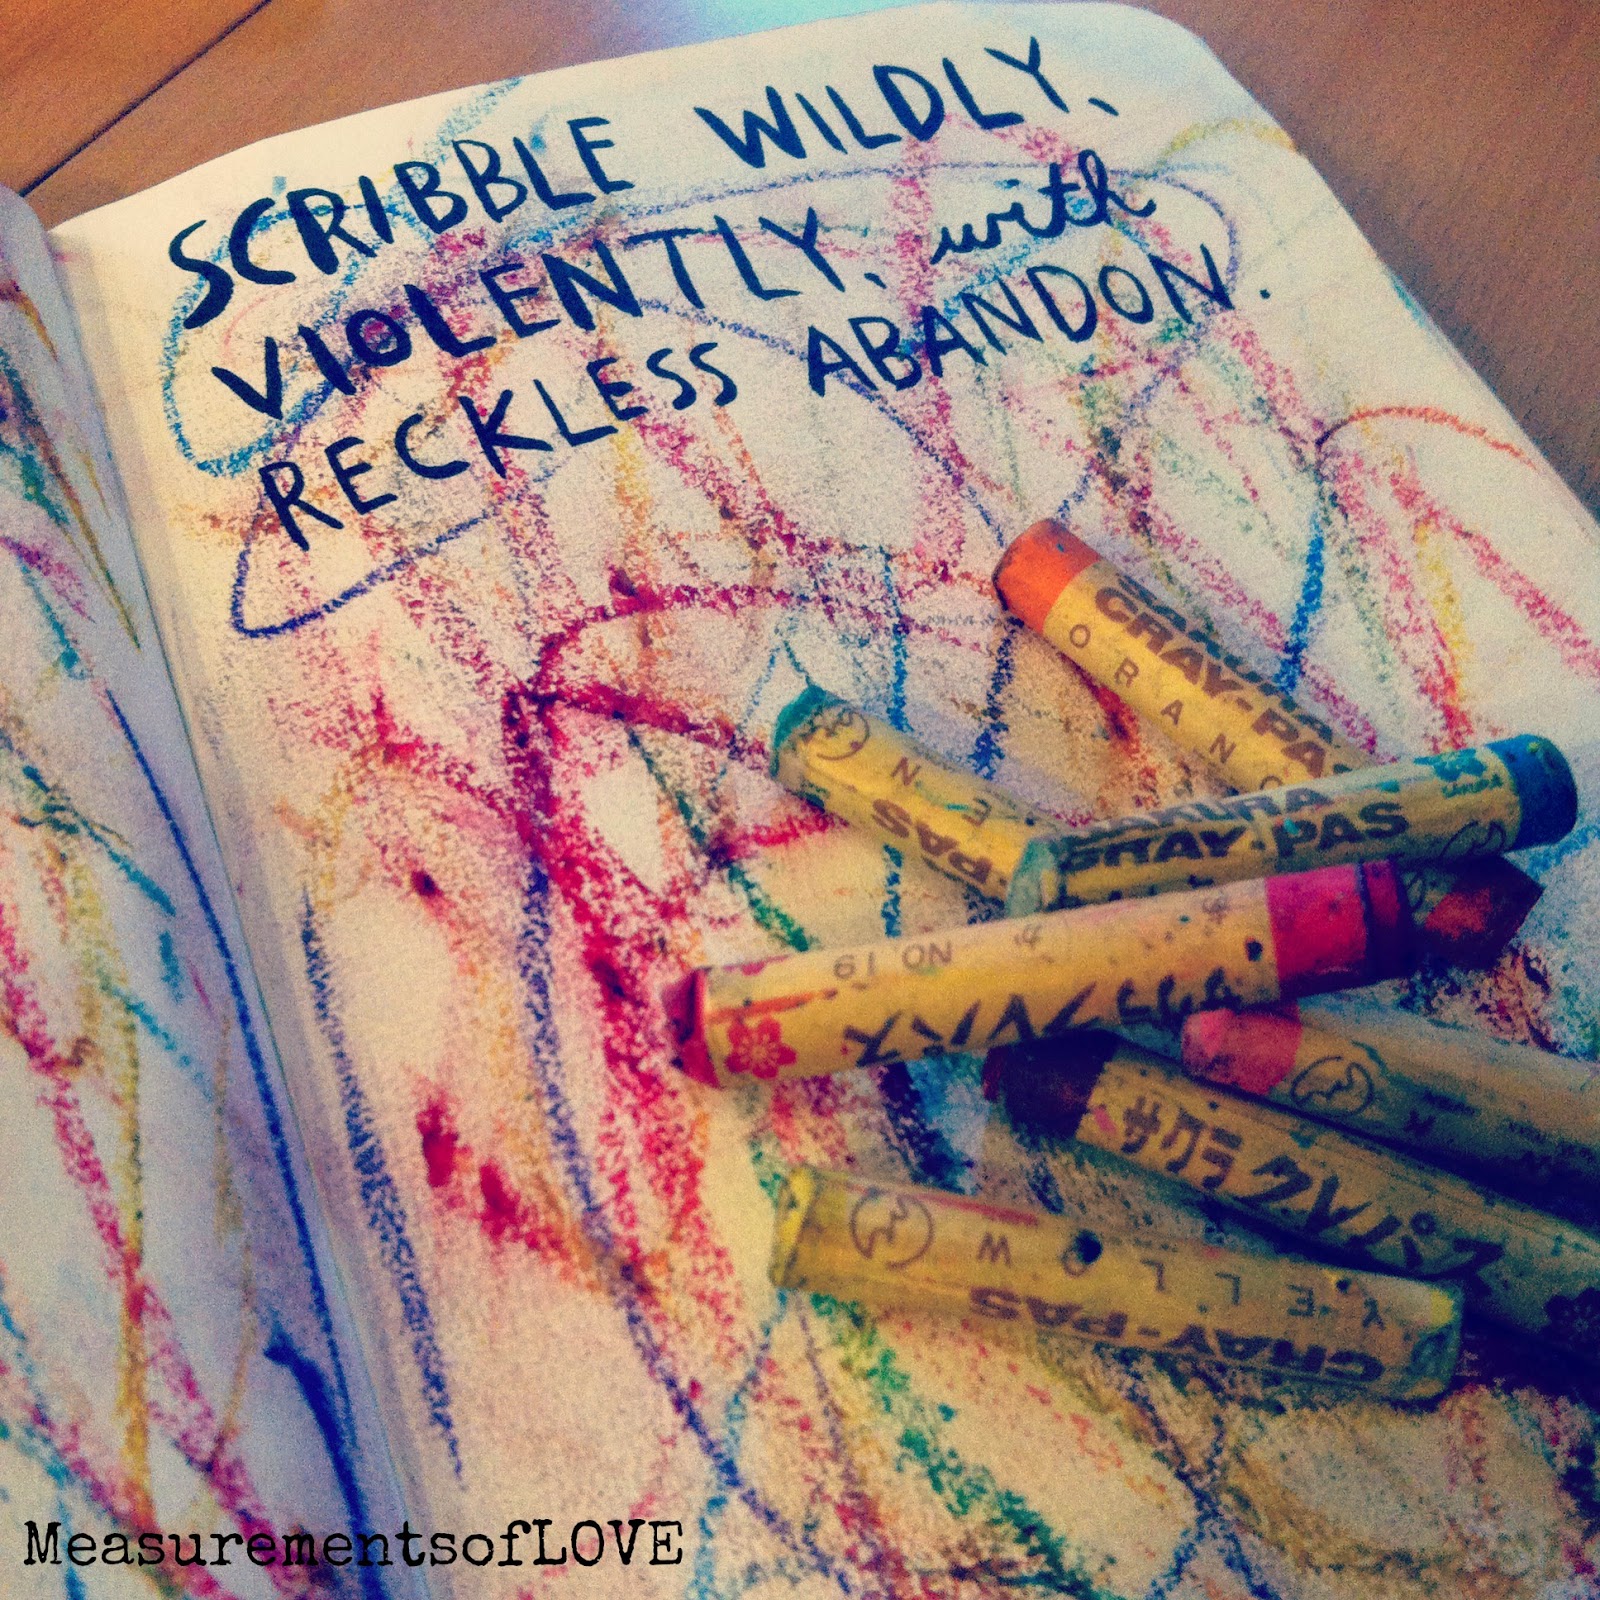 SCRIBBLE WILDLY,
VIOLENTLY, with
RECKLESS ABANDON.
CRAY-PAS
ORANG
EN
PAS
SAKURA
CRAY-PAS
NO 19
クレパス
サクラクレパス
YELLOW
CRAY-PAS
MeasurementsofLOVE